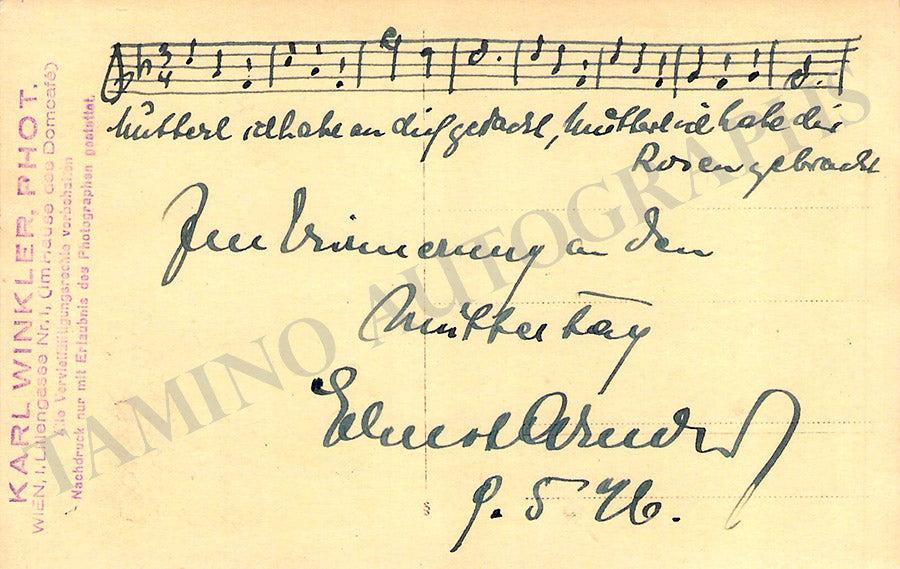 3
4
Mutterl ich habe an dich gedacht, Mutterl ich habe dir
Rosen gebracht
Zur Erinnerung an den
Muttertag
Ernst Arnold
9. 5 46.
KARL WINKLER, PHOT.
WIEN, I. Liliengasse Nr. 1, (im Hause des Domcafé)
Alle Vervielfältigungsrechte vorbehalten
Nachdruck nur mit Erlaubnis des Photographen gestattet.
TAMINO AUTOGRAPHS